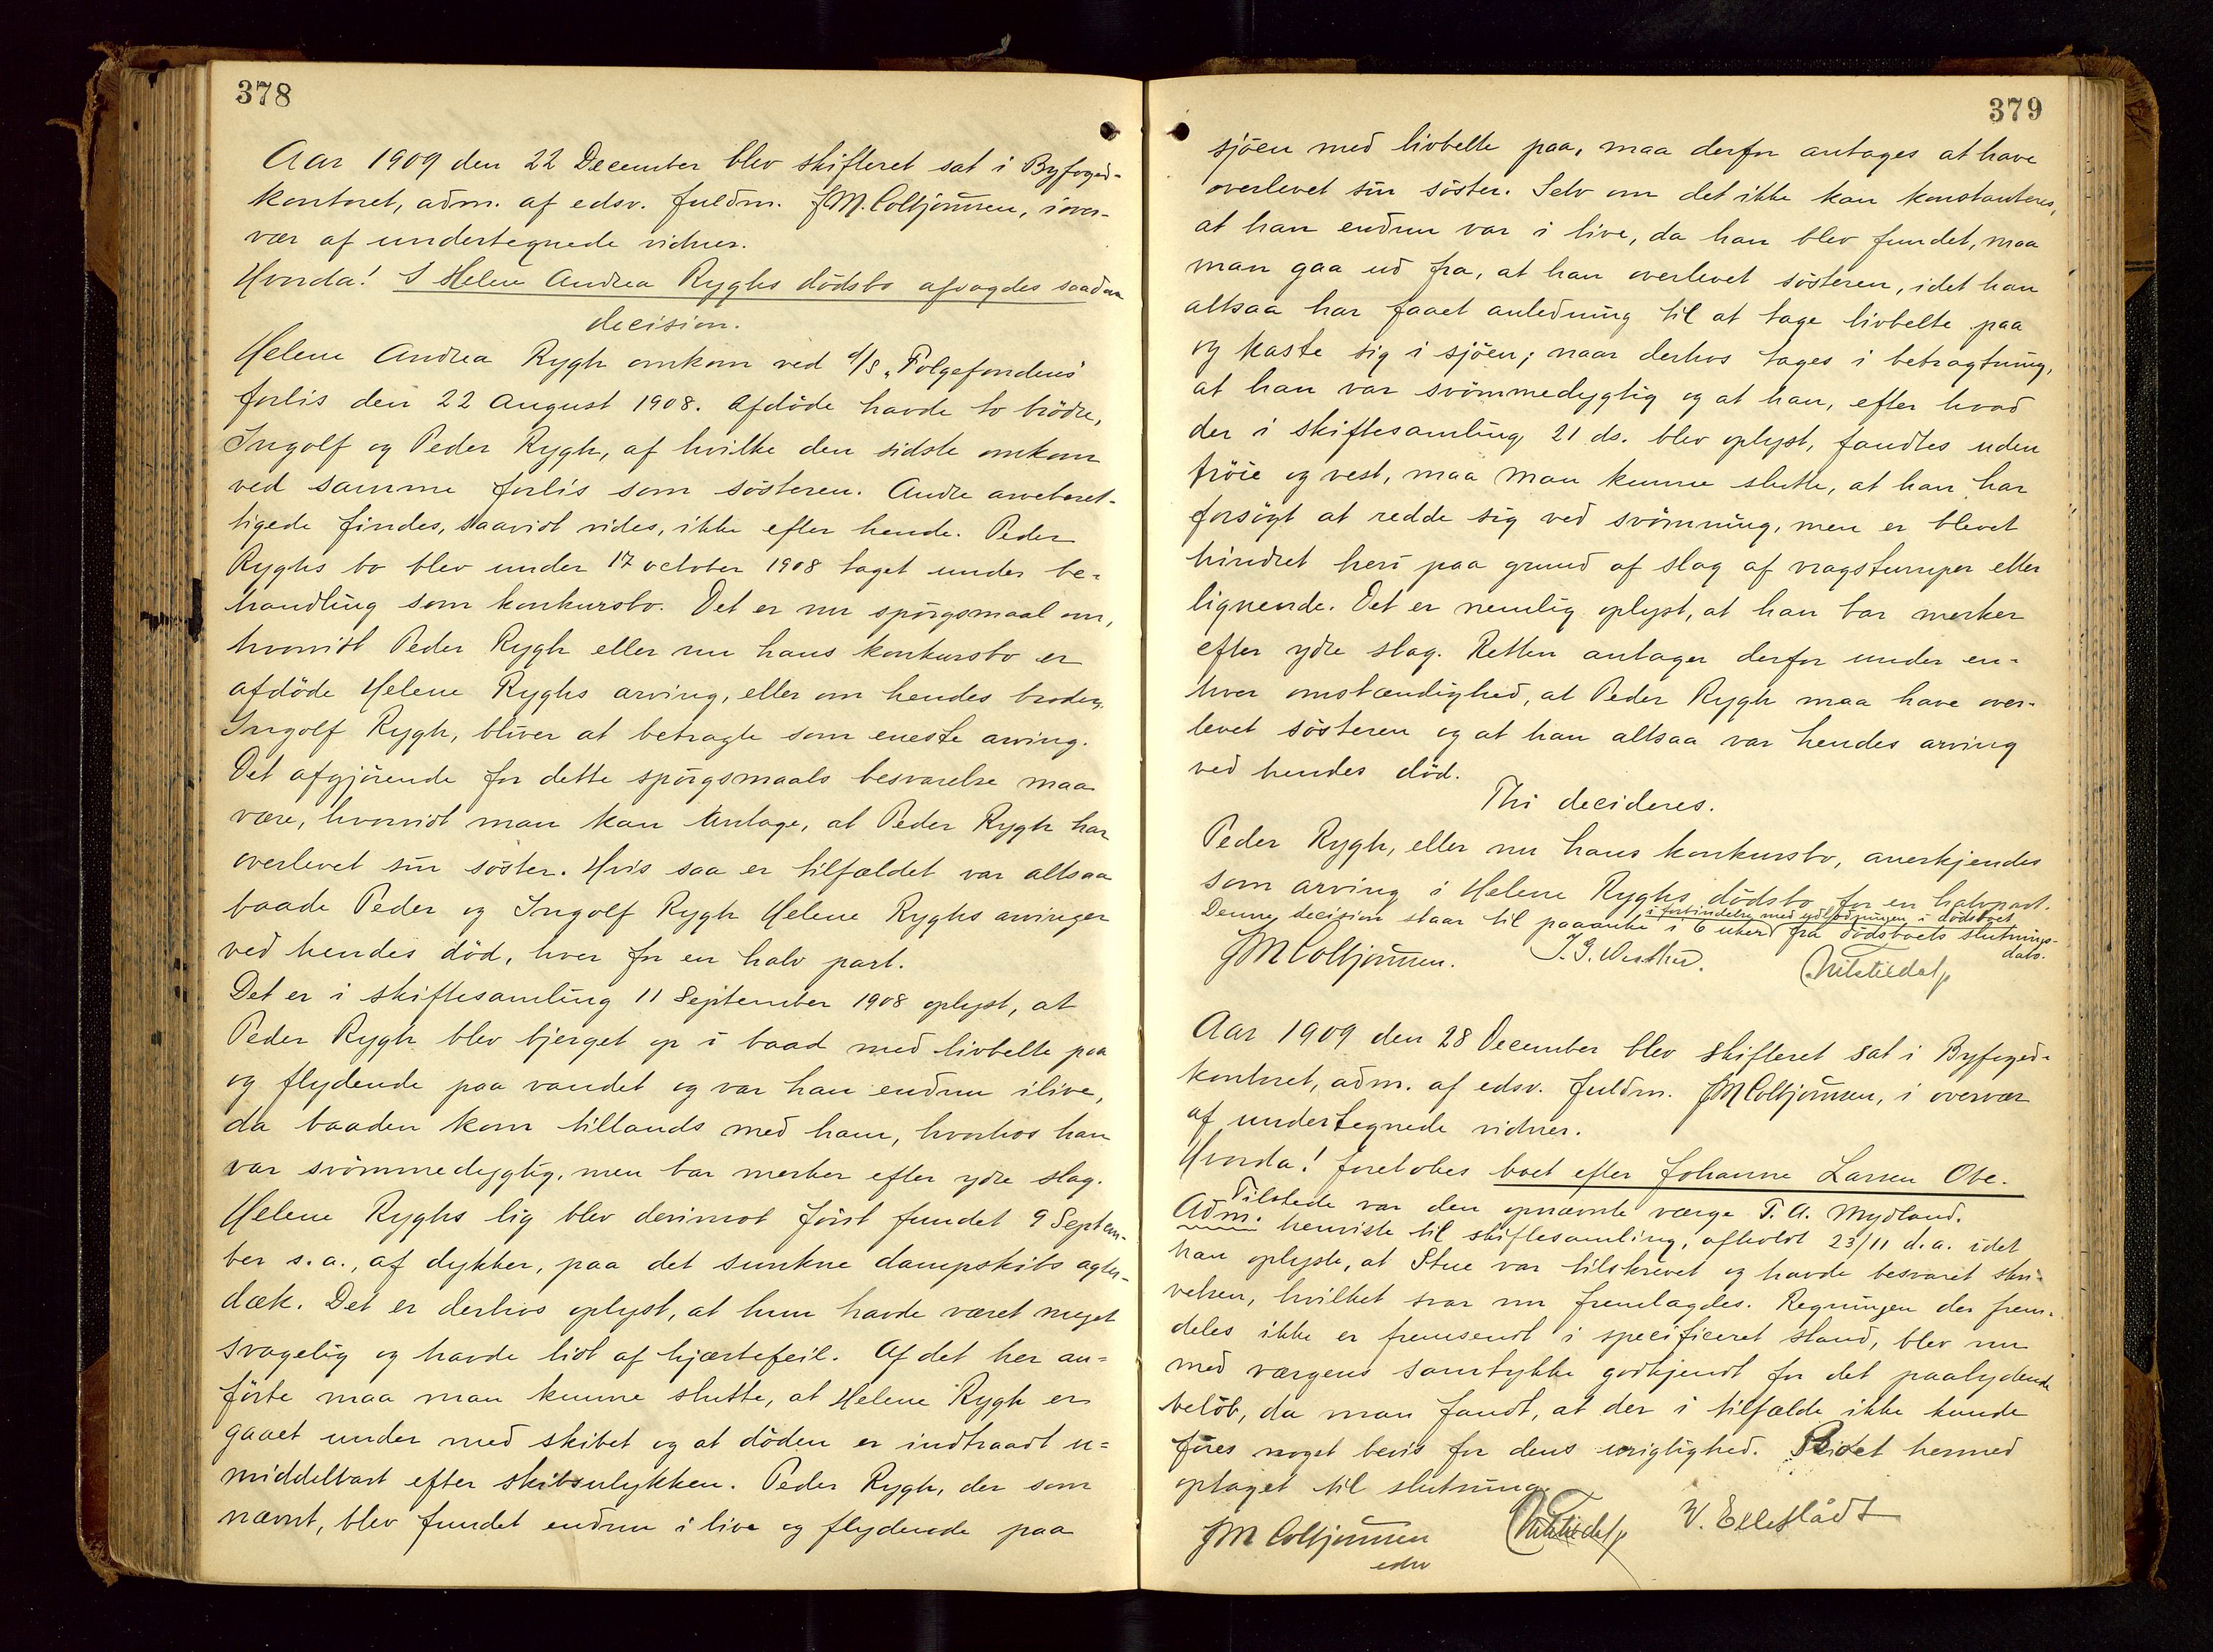 378
Aar 1909 den 22 December blev skifteret sat i Byfoged-
kontoret, adm. af edsv. fuldm. JM. Colbjørnsen, i over-
vær af undertegnede vidner.
Hvorda! I Helene Andrea Ryghs dödsbo afsagdes saadan
decision.
Helene Andrea Rygh omkom ved d/s „Folgefondens"
forlis den 22 August 1908. Afdöde havde to brödre,
Ingolf og Peder Rygh, af hvilke den sidste omkom
ved samme forlis som sösteren. Andre arveberet-
tigede findes, saavidt vides, ikke efter hende. Peder
Ryghs bo blev under 17 october 1908 taget under be-
handling som konkursbo. Det er nu spörgsmaal om,
hvorvidt Peder Rygh eller nu hans konkursbo er
afdöde Helene Ryghs arving, eller om hendes broder,
Ingolf Rygh, bliver at betragte som eneste arving.
Det afgjörende for dette spörgsmaals besvarelse maa
være, hvorvidt man kan antage, at Peder Rygh har
overlevet sin söster. Hvis saa er tilfældet var altsaa
baade Peder og Ingolf Rygh Helene Ryghs arvinger
ved hendes död, hver for en halv part.
Det er i skiftesamling 11 September 1908 oplyst, at
Peder Rygh blev bjerget op i baad med livbelte paa
og flydende paa vandet og var han endnu ilive,
da baaden kom tillands med ham, hvorhos han
var svömmedygtig, men bar merker efter ydre slag.
Helene Ryghs lig blev derimot först fundet 9 Septem-
ber s.a., af dykker, paa det sunkne dampskibs agter-
dæk. Det er derhos oplyst, at hun havde været meget
svagelig og havde lidt af hjærtefeil. Af det her an-
förte maa man kunne slutte, at Helene Rygh er
gaaet under med skibet og at döden er indtraadt u-
middelbart efter skibsulykken. Peder Rygh, der som
nævnt, blev fundet endnu i live og flydende paa
379
sjöen med livbelte paa, maa derfor antages at have
overlevet sin söster. Selv om det ikke kan konstanteres,
at han endnu var i live, da han blev fundet, maa
man gaa ud fra, at han overlevet sösteren, idet han
altsaa har faaet anledning til at tage livbelte paa
og kaste sig i sjöen; naar derhos tages i betragtning,
at han var svömmedygtig og at han, efter hvad
der i skiftesamling 21 ds. blev oplyst, fandtes uden
tröie og vest, maa man kunne slutte, at han har
forsögt at redde sig ved svömning, men er blevet
hindret heri paa grund af slag af vragstumper eller
lignende. Det er nemlig oplyst, at han bar merker
efter ydre slag. Retten antager derfor under en-
hver omstændighed, at Peder Rygh maa have over-
levet sösteren og at han altsaa var hendes arving
ved hendes död.
Thi decideres.
Peder Rygh, eller nu hans konkursbo, anerkjendes
som arving i Helene Ryghs dödsbo for en halvpart.
i forbindelse med udlodningen i dödsboet
Denne decision staar til paaanke i 6 uker fra dödsboets slutnings-
dato.
JM Colbjørnsen.
Aar 1909 den 28 December blev skifteret sat i Byfoged-
kontoret, adm. af edsv. fuldm. JM Colbjørnsen, i overvær
af undertegnede vidner.
Hvorda! foretokes boet efter Johanne Larsen Obe.
Tilstede var den opnævnte værge T. A. Mydland.
Adm. henviste til skiftesamling, afholdt 23/11 d.a. idet
han oplyste, at Stue var tilskrevet og havde besvaret skri-
velsen, hvilket svar nu fremlagdes. Regningen der frem-
deles ikke er fremsendt i specificeret stand, blev nu
med værgens samtykke godkjendt for det paalydende
belöb, da man fandt, at der i tilfælde ikke kunde
föres noget bevis for dens urigtighed. Skiftet hermed
optaget til slutning.
JM Colbjørnsen
edsv
V. Ellefsládt